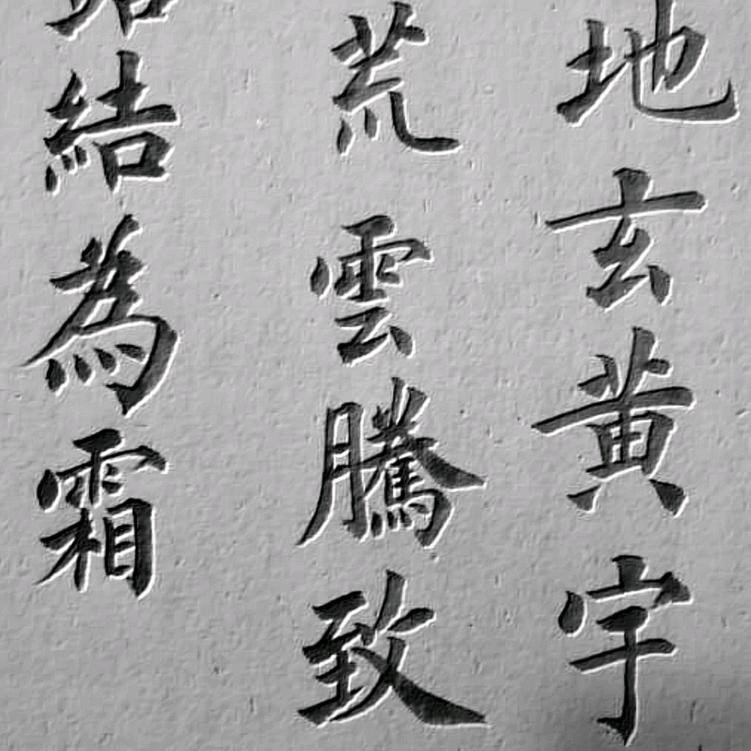 地玄黃宇
荒雲騰致
結為霜